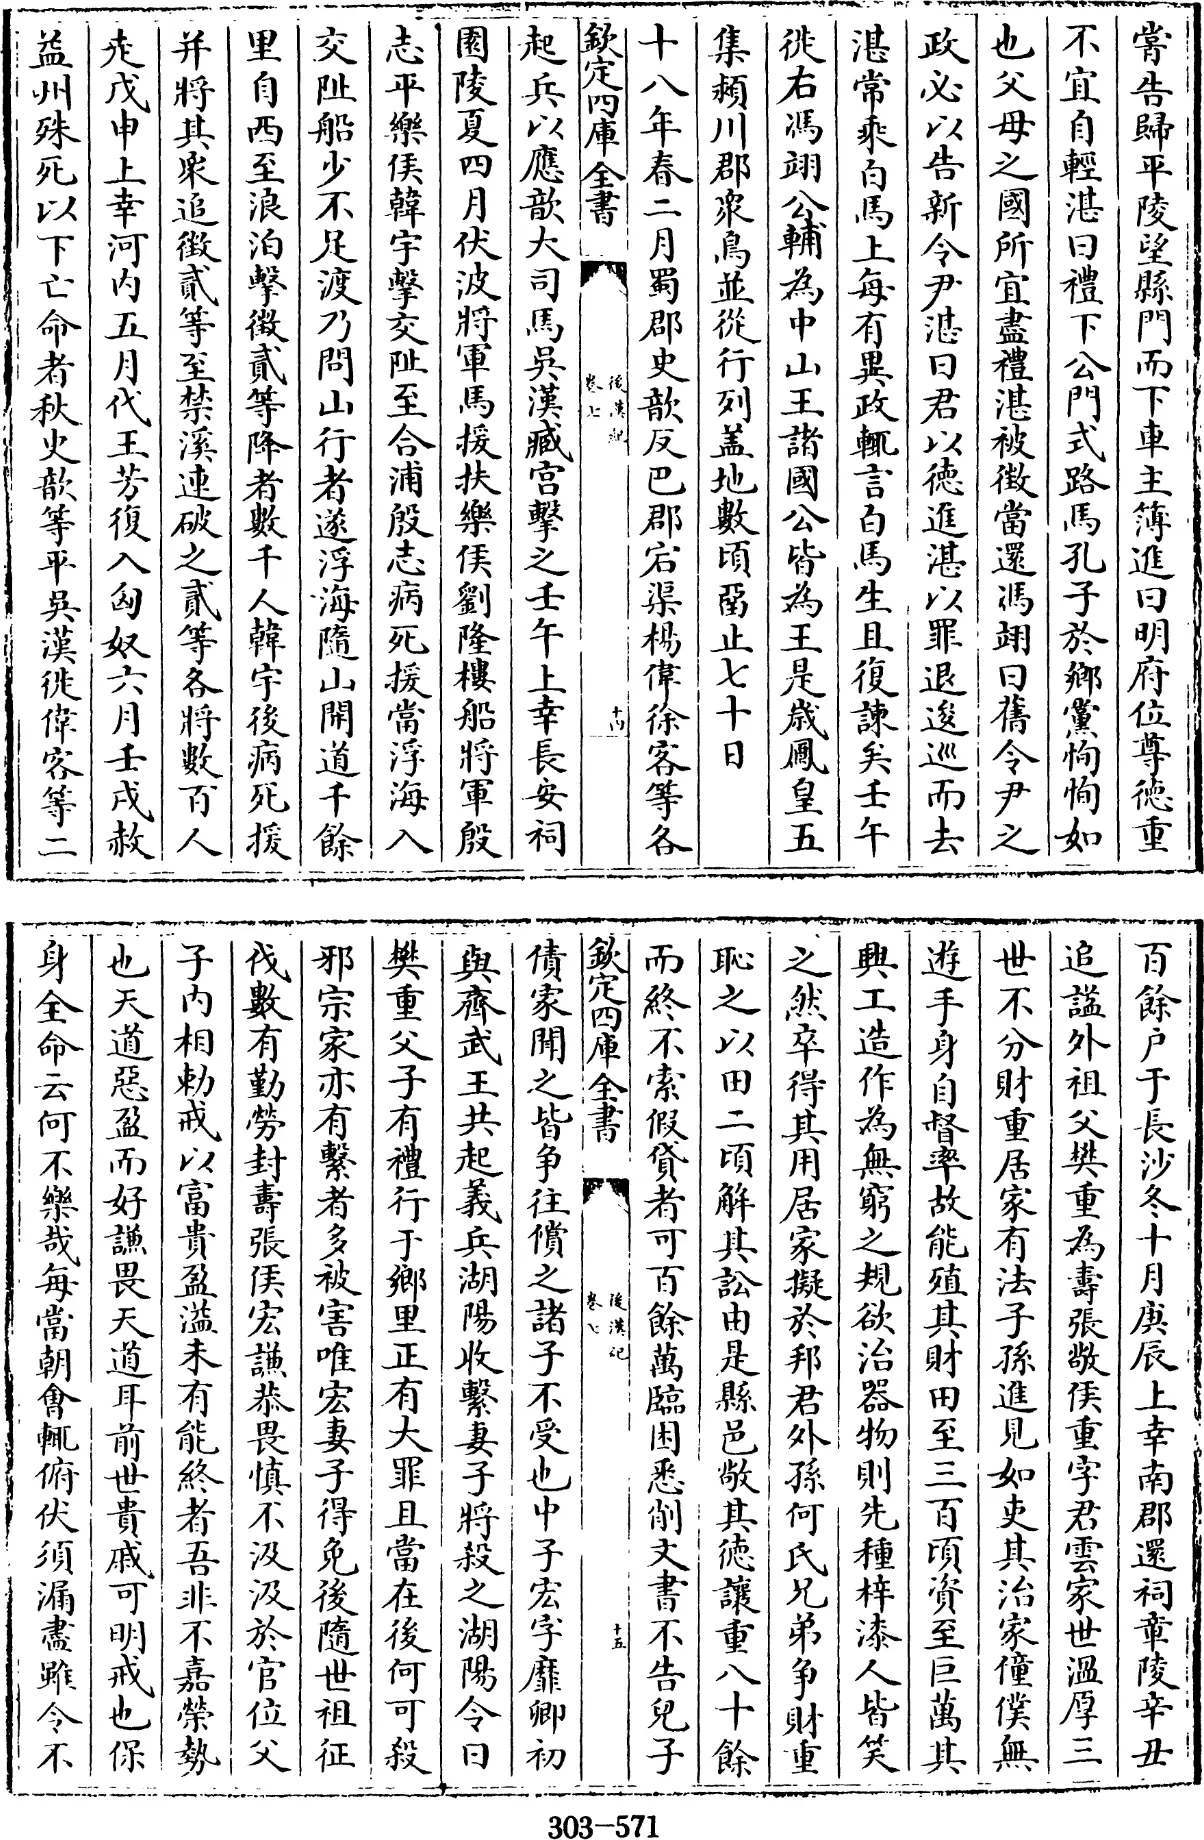 嘗告歸平陵望縣門而下車主簿進曰明府位尊德重
不宜自輕湛曰禮下公門式路馬孔子於鄉黨恂恂如
也父母之國所宜盡禮湛被徵當還馮翊曰舊令尹之
政必以告新令尹湛曰君以德進湛以罪退逡巡而去
湛常乘白馬上每有異政輒言白馬生且復諫矣壬午
徙右馮翊公輔為中山王諸國公皆為王是歲鳳皇五
集潁川郡衆鳥並從行列盖地數頃留止七十日
十八年春二月蜀郡史歆反巴郡宕渠楊偉徐客等各
欽定四庫全書
後漢紀
卷七
十四
起兵以應歆大司馬吳漢臧宫擊之壬午上幸長安祠
園陵夏四月伏波將軍馬援扶樂侯劉隆樓船將軍殷
志平樂侯韓宇擊交阯至合浦殷志病死援當浮海入
交阯船少不足渡乃問山行者遂浮海隨山開道千餘
里自西至浪泊擊徵貳等降者數千人韓宇後病死援
并將其衆追徵貳等至禁溪連破之貳等各將數百人
走戊申上幸河内五月代王芳復入匈奴六月壬戌赦
益州殊死以下亡命者秋史歆等平吳漢徙偉客等二
百餘户于長沙冬十月庚辰上幸南郡還祠章陵辛丑
追諡外祖父樊重為壽張敬侯重字君雲家世溫厚三
世不分財重居家有法子孫進見如吏其治家僮僕無
遊手身自督率故能殖其財田至三百頃資至巨萬其
興工造作為無窮之規欲治器物則先種梓漆人皆笑
之然卒得其用居家擬於邦君外孫何氏兄弟争財重
恥之以田二頃解其訟由是縣邑敬其德讓重八十餘
而終不索假貸者可百餘萬臨困悉削文書不告兒子
欽定四庫全書
後漢紀
卷七
十五
債家聞之皆争往償之諸子不受也中子宏字靡卿初
與齊武王共起義兵湖陽收繫妻子將殺之湖陽令曰
樊重父子有禮行于鄉里正有大罪且當在後何可殺
邪宗家亦有繫者多被害唯宏妻子得免後隨世祖征
伐數有勤勞封壽張侯宏謙恭畏慎不汲汲於官位父
子内相勅戒以富貴盈溢未有能終者吾非不嘉榮勢
也天道惡盈而好謙畏天道耳前世貴戚可明戒也保
身全命云何不樂哉每當朝會輒俯伏須漏盡雖令不
303-571